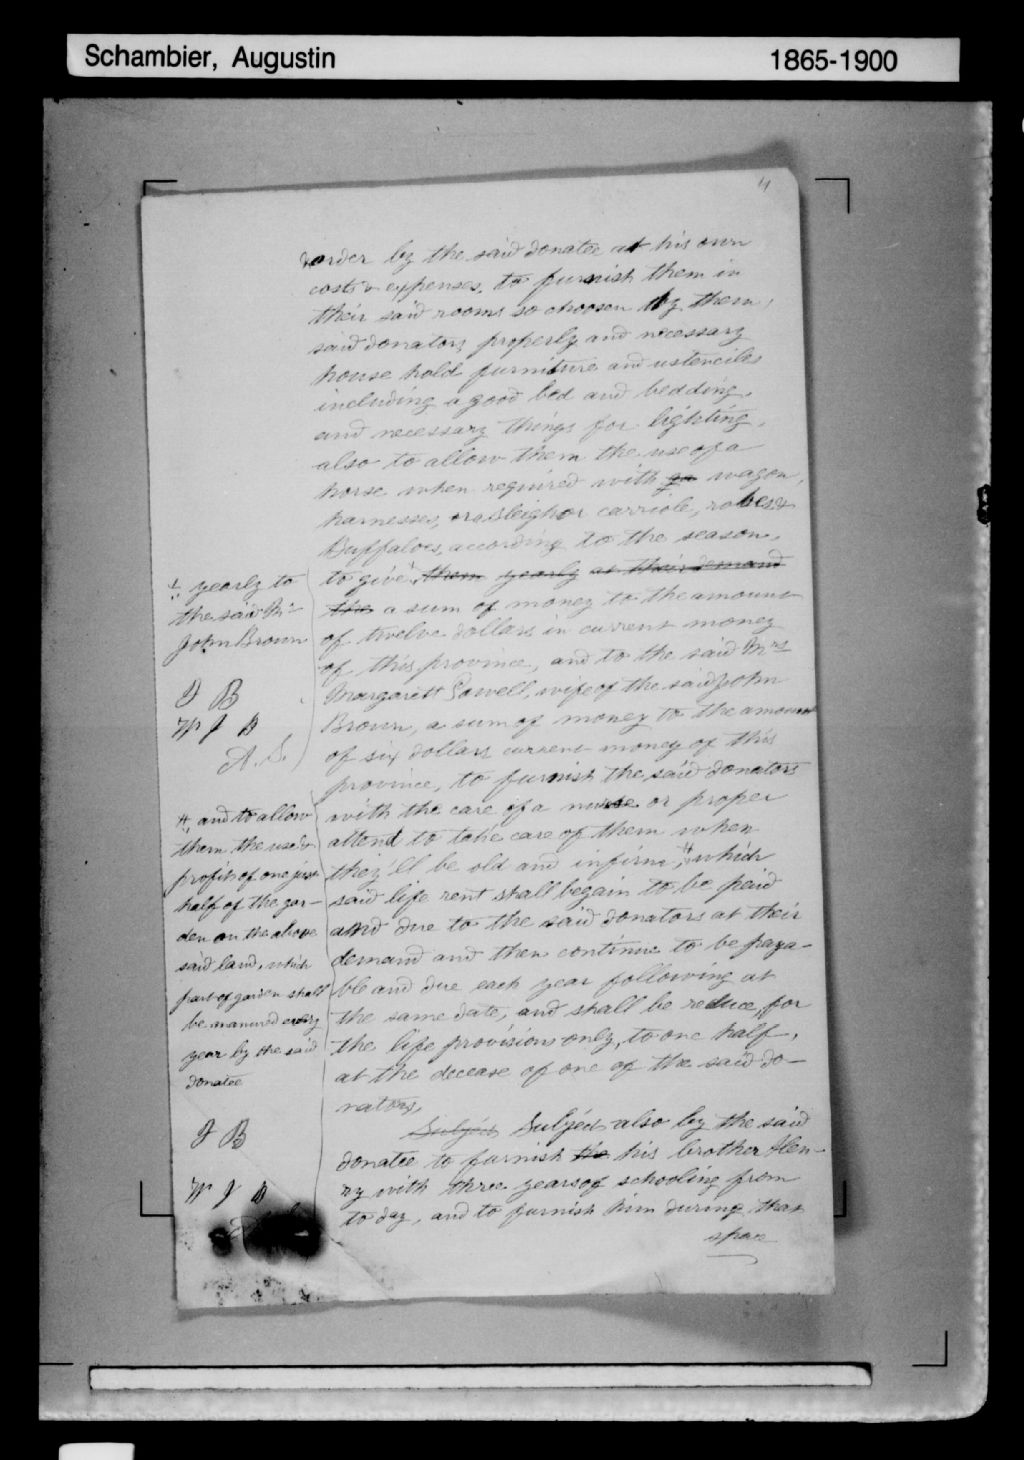 Schambier, Augustin 1865-1900
4
order by the said donatee at his own
costs & expenses, to furnish them in
their said rooms so choosen by them,
said donators, properly and necessary
house hold furnitures and ustenciles
including a good bed and bedding,
and necessary things for lighting,
also to allow them the use of a
horse when required with wagon,
harnesses, or a sleigh or carriole, robes &
Buffaloes, according to the season,
to give them yearly at their demand
the a sum of money to the amount
of twelve dollars in current money
of this province, and to the said Mrs
Margarett Powell, wife of the said John
Brown, a sum of money to the amount
of six dollars current money of this
province, to furnish the said donators
with the care of a nurse or proper
attend to take care of them when
they'll be old and infirm, # which
said life rent shall begain to be paid
and due to the said donators at their
demand and then continue to be paya-
ble and due each year following at
the same date, and shall be reduce, for
the life provisions only, to one half,
at the decease of one of the said do-
nators,
Subject Subject also by the said
donatee to furnish the his brother Hen-
ry with three years of schooling from
to day, and to furnish him during that
span
yearly to
the said Mr
John Brown
J B
W J B
A. S.
# and to allow
them the use &
profits of one just
half of the gar-
den on the above
said land, which
part of garden shall
be manured every
year by the said
donatee
J B
W J B